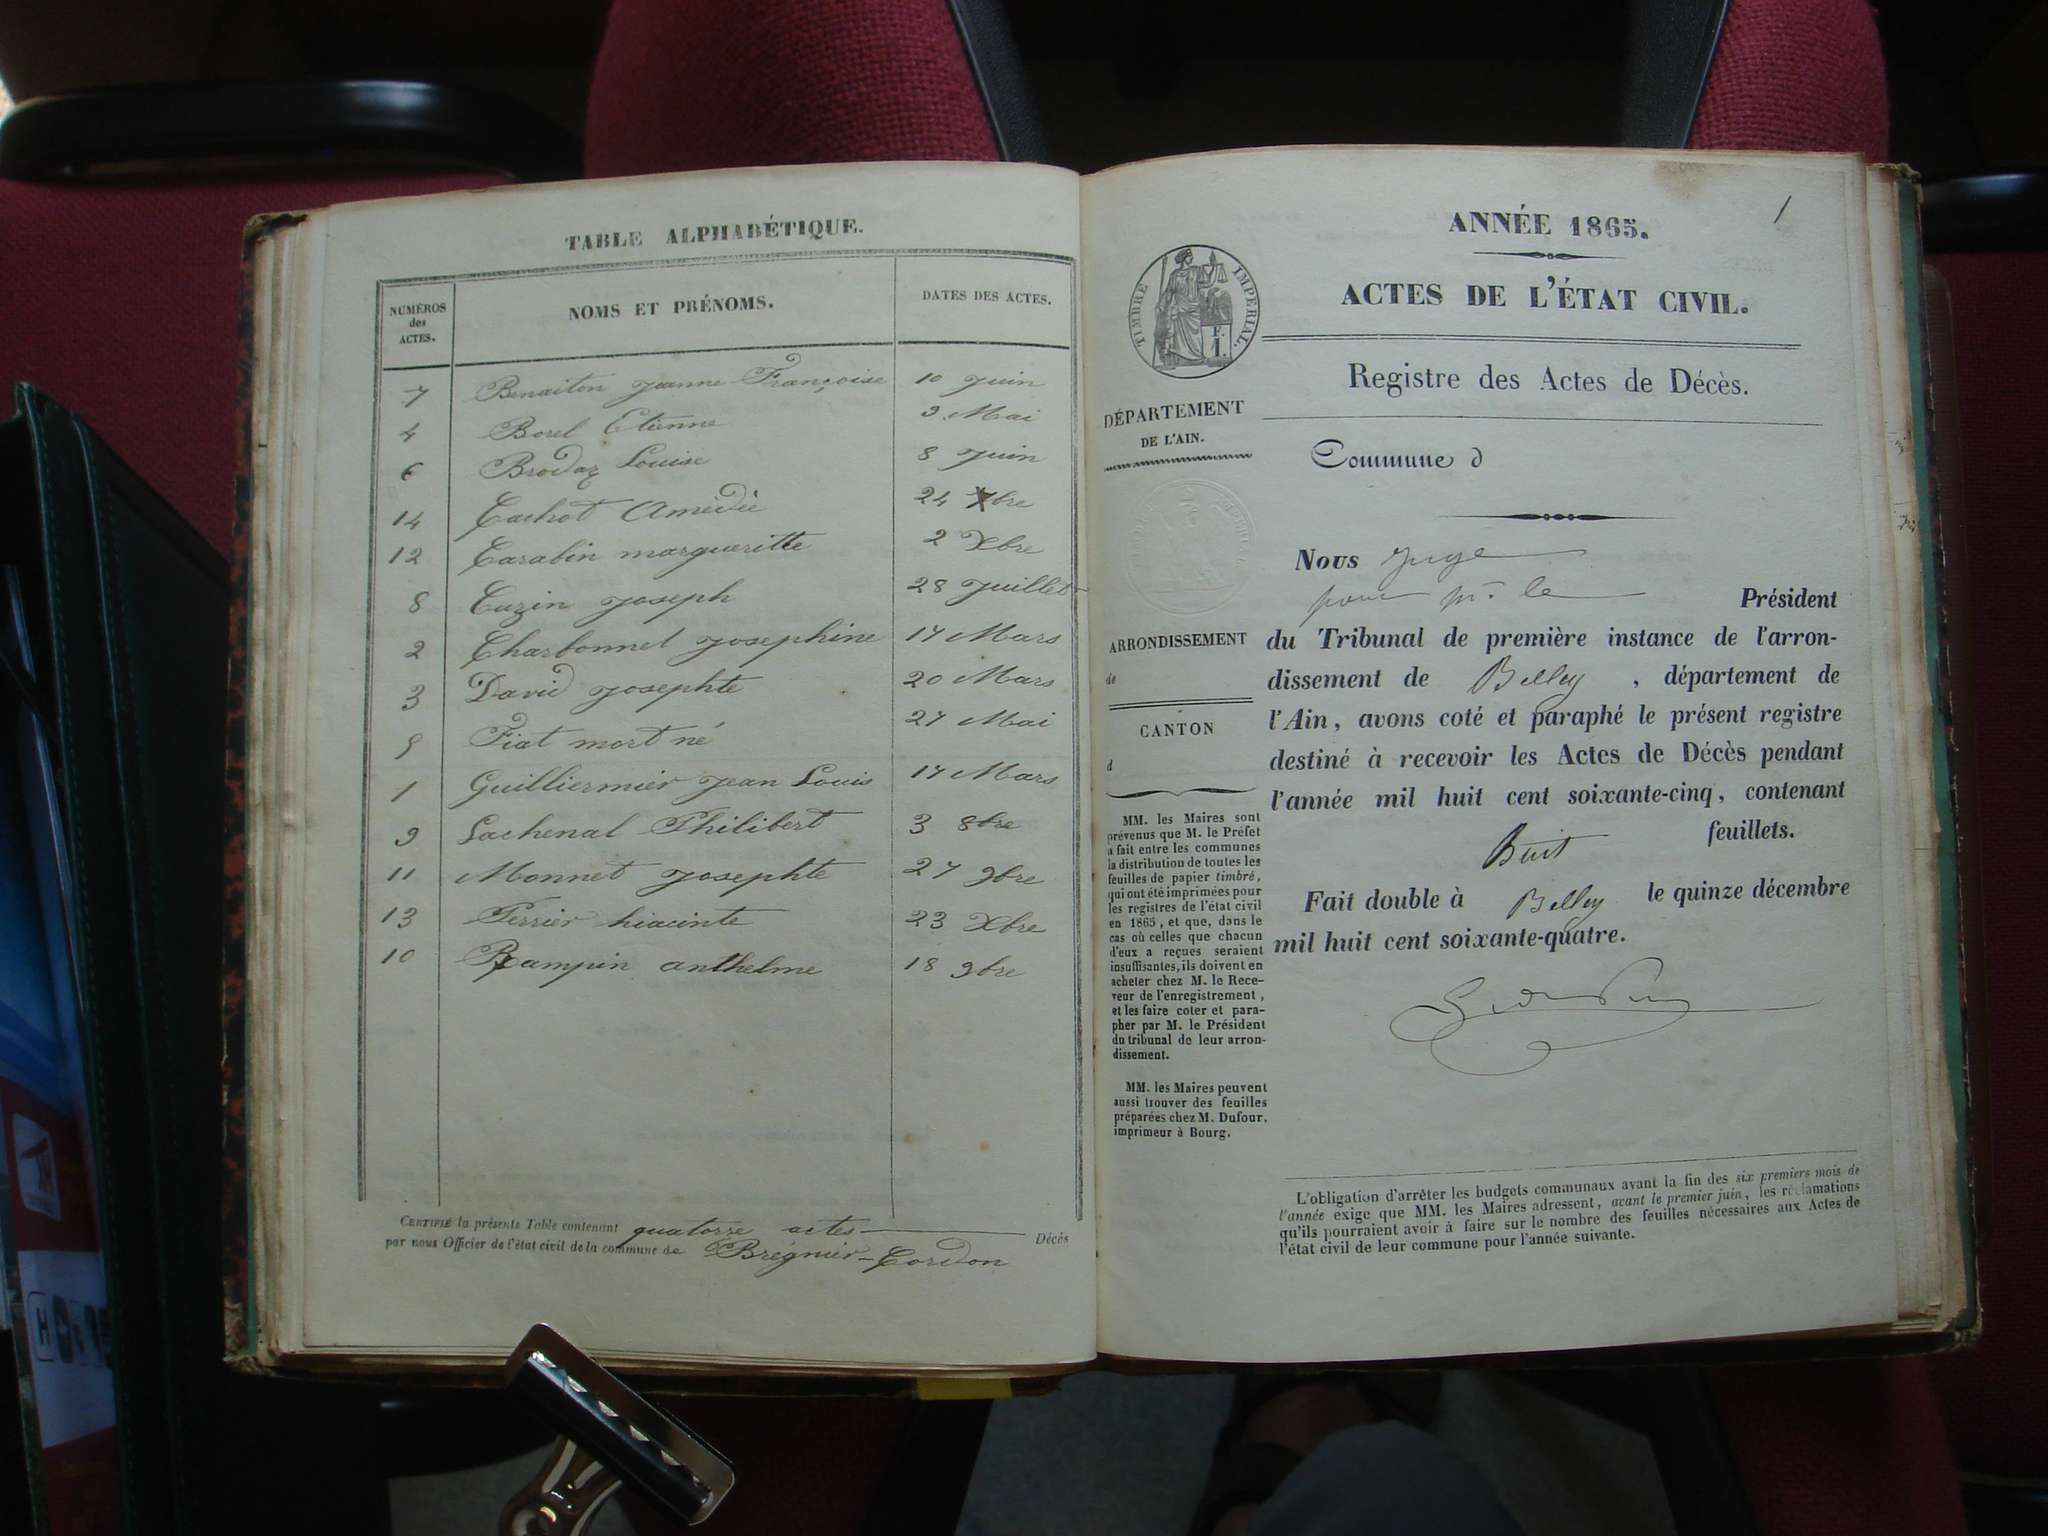 TABLE ALPHABÉTIQUE.
NUMÉROS des ACTES. NOMS ET PRÉNOMS. DATES DES ACTES.
7 Benaiton Jeanne Françoise 10 Juin
4 Borel Etienne 9 Mai
6 Brodaz Louise 8 Juin
14 Cachot Amédée 24 Xbre
12 Carabin margueritte 2 Xbre
8 Cuzin Joseph 28 Juillet
2 Charbonnel Josephine 17 Mars
3 David Josephte 20 Mars
5 Fiat mort né 27 Mai
1 Guilliermier Jean Louis 17 Mars
9 Lachenal Philibert 3 8bre
11 Monnet Josephte 27 9bre
13 Perrier hiacinte 23 Xbre
10 Rampin anthelme 18 9bre
CERTIFIÉ la présente Table contenant quatorze actes Décès
par nous Officier de l'état civil de la commune de Bregnier-Cordon
1
ANNÉE 1865.
TIMBRE IMPERIAL.
F.
1.
ACTES DE L'ÉTAT CIVIL.
Registre des Actes de Décès.
DÉPARTEMENT
DE L'AIN.
Commune d
ARRONDISSEMENT
de
CANTON
d
MM. les Maires sont
prévenus que M. le Préfet
a fait entre les communes
la distribution de toutes les
feuilles de papier timbré,
qui ont été imprimées pour
les registres de l'état civil
en 1865, et que, dans le
cas où celles que chacun
d'eux a reçues seraient
insuffisantes, ils doivent en
acheter chez M. le Rece-
veur de l'enregistrement,
et les faire coter et para-
pher par M. le Président
du tribunal de leur arron-
dissement.
MM. les Maires peuvent
aussi trouver des feuilles
préparées chez M. Dufour,
imprimeur à Bourg.
Nous Juge
pour Mr. le Président
du Tribunal de première instance de l'arron-
dissement de Belley, département de
l'Ain, avons coté et paraphé le présent registre
destiné à recevoir les Actes de Décès pendant
l'année mil huit cent soixante-cinq, contenant
huit feuillets.
Fait double à Belley le quinze décembre
mil huit cent soixante-quatre.
L'obligation d'arrêter les budgets communaux avant la fin des six premiers mois de
l'année exige que MM. les Maires adressent, avant le premier juin, les réclamations
qu'ils pourraient avoir à faire sur le nombre des feuilles nécessaires aux Actes de
l'état civil de leur commune pour l'année suivante.